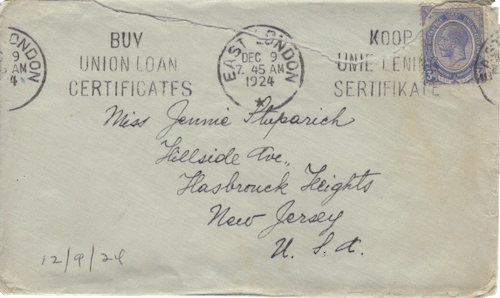 LONDON
9
AM
4
BUY
UNION LOAN
CERTIFICATES
EAST LONDON
DEC 9
7. 45 AM
1924
KOOP
UNIE LENING
SERTIFIKATE
Miss Jennie Steparich
Hillside Ave.,
Hasbrouck Heights
New Jersey
U. S. A.
12/9/24